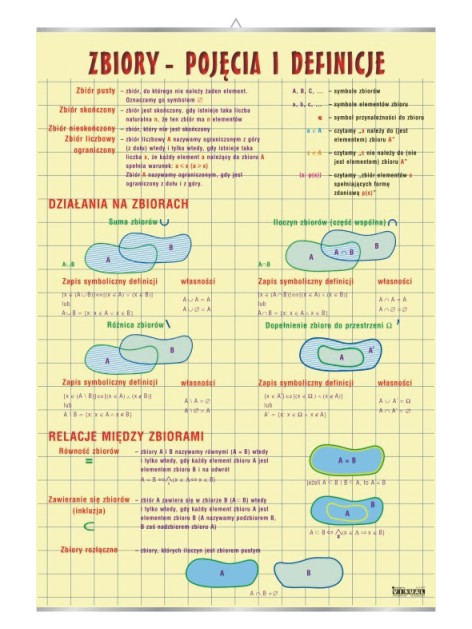 ZBIORY - POJĘCIA I DEFINICJE
Zbiór pusty – zbiór, do którego nie należy żaden element.
Oznaczamy go symbolem ∅
Zbiór skończony – zbiór jest skończony, gdy istnieje taka liczba
naturalna n, że ten zbiór ma n elementów
Zbiór nieskończony – zbiór, który nie jest skończony
Zbiór liczbowy ograniczony – zbiór A nazywamy ograniczonym z góry
(z dołu) wtedy i tylko wtedy, gdy istnieje taka
liczba
że każdy element
należący do zbioru A
spełnia warunek:
Zbiór A nazywamy ograniczonym, gdy jest
ograniczony z dołu i z góry.
A, B, C, ... – symbole zbiorów
a, b, c, ... – symbole elementów zbioru
∈ – symbol przynależności do zbioru
– czytamy „x należy do (jest
elementem) zbioru A”
– czytamy „x nie należy do (nie
jest elementem) zbioru A”
– czytamy „zbiór elementów x
spełniających formę
zdaniową p(x)”
DZIAŁANIA NA ZBIORACH
Suma zbiorów ∪
A
B
A∪B
Zapis symboliczny definicji własności
lub
A ∪ A = A
A ∪ ∅ = A
Iloczyn zbiorów (część wspólna) ∩
A
A ∩ B
B
A∩B
Zapis symboliczny definicji własności
lub
A ∩ A = A
A ∩ ∅ = ∅
Różnica zbiorów \
A
B
Zapis symboliczny definicji własności
lub
A \ B = {x: x ∈ A ∧ x ∉ B}
A \ A = ∅
Dopełnienie zbioru do przestrzeni Ω '
A
A'
Zapis symboliczny definicji własności
lub
A' = {x: x ∈ Ω ∧ x ∉ A}
A ∪ A' = Ω
A ∩ A' = ∅
RELACJE MIĘDZY ZBIORAMI
Równość zbiorów – zbiory A i B nazywamy równymi (A = B) wtedy
= i tylko wtedy, gdy każdy element zbioru A jest
elementem zbioru B i na odwrót
A = B
jeżeli A ⊂ B i B ⊂ A, to A = B
Zawieranie się zbiorów – zbiór A zawiera się w zbiorze B (A ⊂ B) wtedy
(inkluzja) i tylko wtedy, gdy każdy element zbioru A jest
⊂ elementem zbioru B (A nazywamy podzbiorem B,
B zaś nadzbiorem zbioru A)
A
B
Zbiory rozłączne – zbiory, których iloczyn jest zbiorem pustym
A
B
A ∩ B = ∅
VISUAL